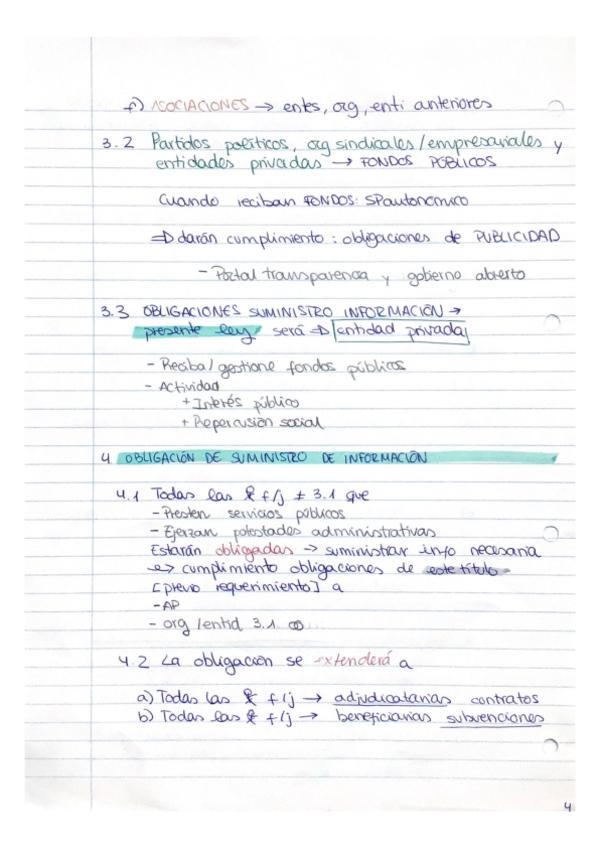 f) ASOCIACIONES → entes, org, enti anteriores
3.2 Partidos políticos, org sindicales/empresariales y
entidades privadas → FONDOS PÚBLICOS
Cuando reciban FONDOS: SPautonómico
⇒ darán cumplimiento: obligaciones de PUBLICIDAD
- Portal transparencia y gobierno abierto
3.3 OBLIGACIONES SUMINISTRO INFORMACIÓN →
presente ley será ⇒ entidad privada
- Reciba/gestione fondos públicos
- Actividad
+ Interés público
+ Repercusión social
4 OBLIGACIÓN DE SUMINISTRO DE INFORMACIÓN
4.1 Todas las f/j ≠ 3.1 que
- Presten servicios públicos
- Ejerzan potestades administrativas
Estarán obligadas → suministrar info necesaria
↪ cumplimiento obligaciones de este título
[previo requerimiento] a
- AP
- org/entid 3.1
4.2 La obligación se extenderá a
a) Todas las f/j → adjudicatarias contratos
b) Todas las f/j → beneficiarias subvenciones
4